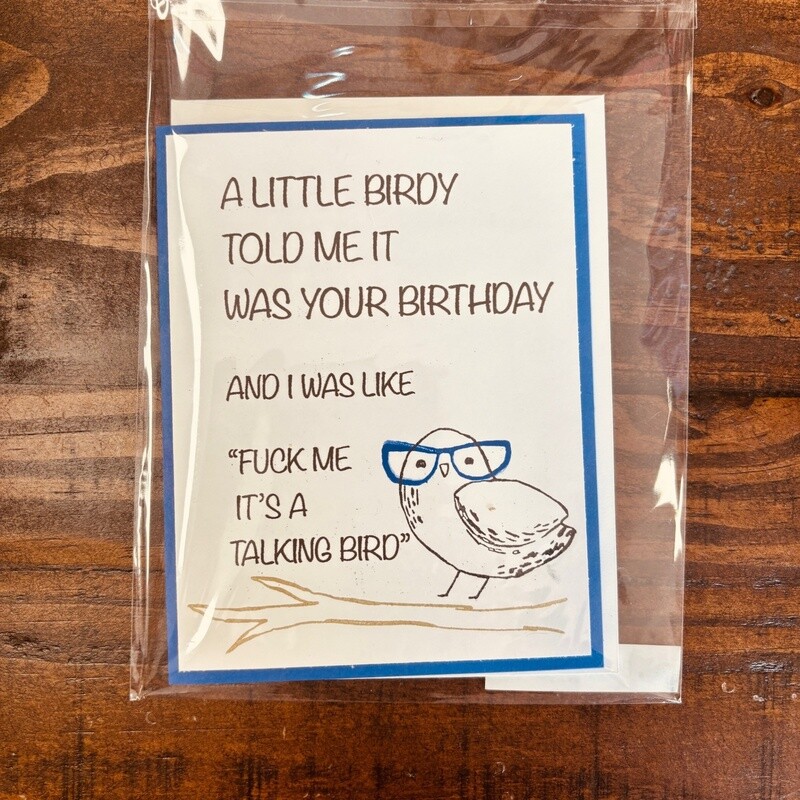 A LITTLE BIRDY
TOLD ME IT
WAS YOUR BIRTHDAY
AND I WAS LIKE
“FUCK ME
IT'S A
TALKING BIRD”